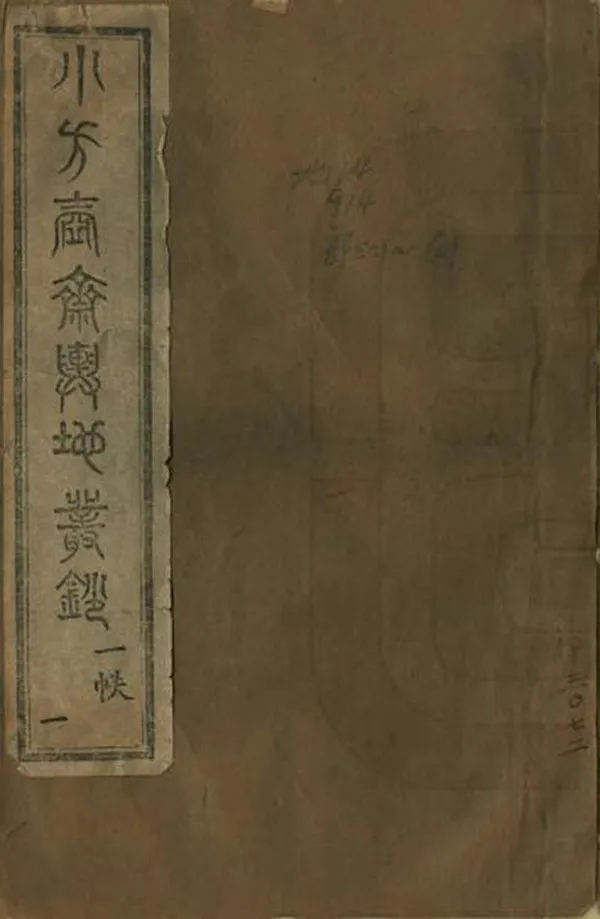 小方壺齋輿地叢鈔
一帙
一
914
三〇七二